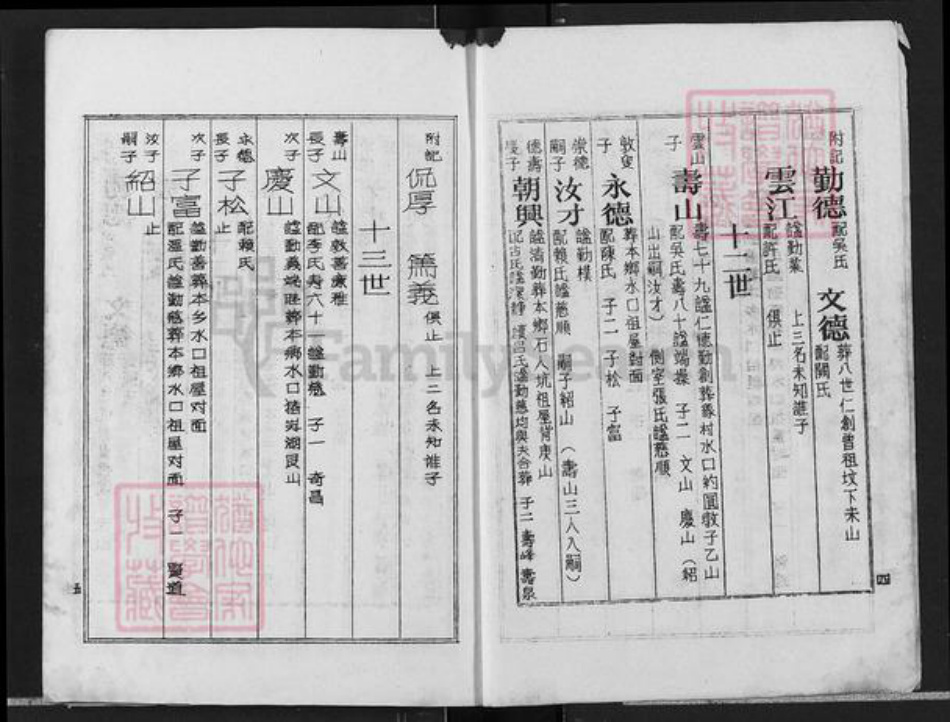 附記
勤德 配吳氏
文德 葬八世仁創曾祖坟下未山
配關氏
雲江 謚勤業 上三名未知誰子
配許氏 俱止
十二世
雲山子 壽山 壽七十九謚仁德勤創葬象村水口約圓墩子乙山
配吳氏壽八十謚端操 子二 文山 慶山 (紹
山出嗣汝才) 側室張氏謚慈順
敦叟子 永德 葬本鄉水口祖屋對面
配陳氏 子二 子松 子富
崇德嗣子 汝才 謚勤樸
配賴氏謚慈順 嗣子紹山 (壽山三人入嗣)
德壽長子 朝興 謚清勤葬本鄉石人坑祖屋背庚山
氏謚勤慈均與夫合葬 子二 壽峰 壽泉
四
附記
侃厚 篤義 俱止 上二名未知誰子
十三世
壽山長子 文山 謚敦善
配李氏寿六十 謚勤慈 子一 奇昌
次子 慶山 謚勤義 葬本鄉水口 湖艮山
永德長子 子松 配賴氏
止
次子 子富 謚勤善葬本乡水口祖屋对面
配溫氏謚勤慈葬本鄉水口祖屋对面 子一 賢道
汝才嗣子 紹山 止
五